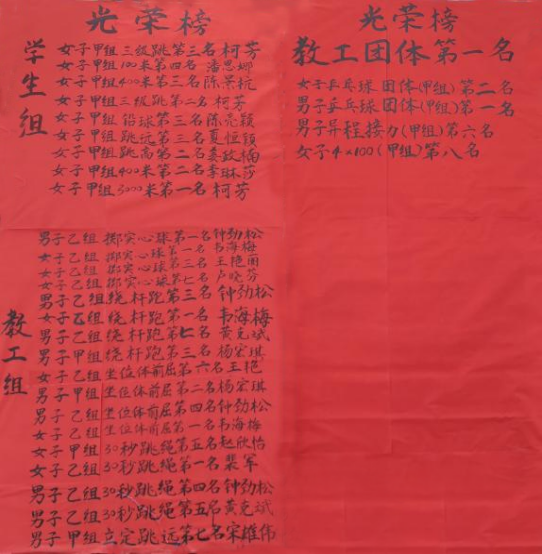 光荣榜
学生组
女子甲组三级跳第三名柯芳
女子甲组100米第四名潘思娜
女子甲组400米第三名陈景杭
女子甲组三级跳第二名柯芳
女子甲组铅球第三名陈亮颖
女子甲组跳远第三名夏恒颖
女子甲组跳高第二名娄政楠
女子甲组400米第二名李琳莎
女子甲组3000米第一名柯芳
教工组
男子乙组掷实心球第一名钟劲松
女子乙组掷实心球第一名韦海梅
女子乙组掷实心球第三名王艳丽
女子乙组掷实心球第七名卢晓芬
男子乙组绕杆跑第三名钟劲松
女子乙组绕杆跑第一名韦海梅
男子乙组绕杆跑第七名黄克斌
男子甲组绕杆跑第三名杨宏琪
女子乙组坐位体前屈第六名王艳
男子甲组坐位体前屈第二名杨宏琪
男子乙组坐位体前屈第四名钟劲松
女子乙组坐位体前屈第一名韦海梅
女子甲组30秒跳绳第五名赵欣怡
女子乙组30秒跳绳第一名裴军
男子乙组30秒跳绳第四名钟劲松
男子乙组30秒跳绳第五名黄克斌
男子甲组立定跳远第七名宋雄伟
光荣榜
教工团体第一名
女子乒乓球团体(甲组)第二名
男子乒乓球团体(甲组)第一名
男子异程接力(甲组)第六名
女子4×100(甲组)第八名